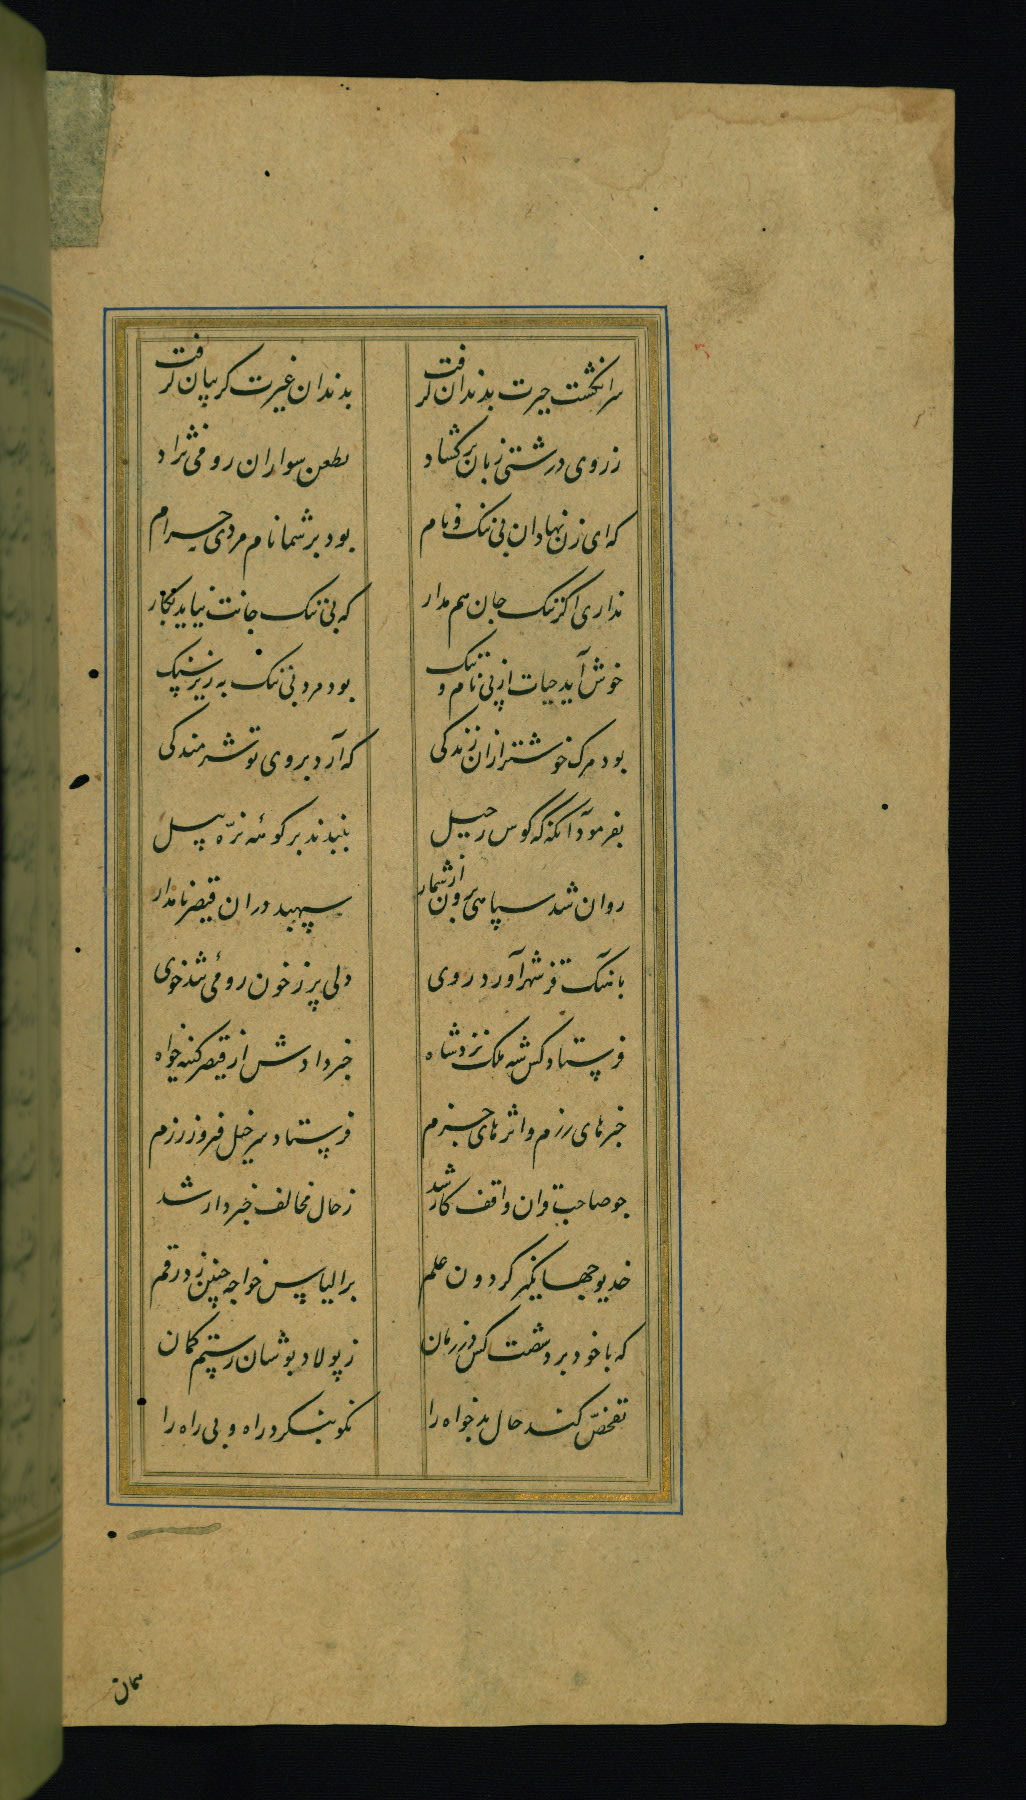 سرانگشت حیرت بدندان گرفت بدندان غیرت گریبان گرفت
ز روی درشتی زبان برکشاد بطعن سواران رومی نژاد
که ای زن نهادان بی ننگ و نام بود بر شما نام مردی حرام
نداری اگر ننگ جان هم مدار که بی ننگ جانت نیاید بکار
خوش آید حیات از پی نام و ننگ بود مرد بی ننگ به زیر سنگ
بود مرگ خوشتر ازان زندگی که آرد بروی تو شرمندگی
بفرمود آنگه که کوس رحیل ببندند بر کوهه نره پیل
روان شد سپاهی برون از شمار سپهبد دران قیصر نامدار
باهنگ قرشهر آورد روی دلی پر ز خون رومی تندخوی
فرستاد کس شه ملک نزد شاه خبر دادش از قیصر کینه خواه
خبرهای رزم و اثرهای جزم فرستاد سرخیل فیروز رزم
چو صاحبقران واقف کار شد ز حال مخالف خبردار شد
خدیو جهانگیر گردون علم بر الیاس خواجه چنین زد رقم
که با خود برد شصت کس در زمان ز پولاد پوشان رستم کمان
تفحص کند حال بدخواه را نکو بنگرد راه و بی راه را
همان